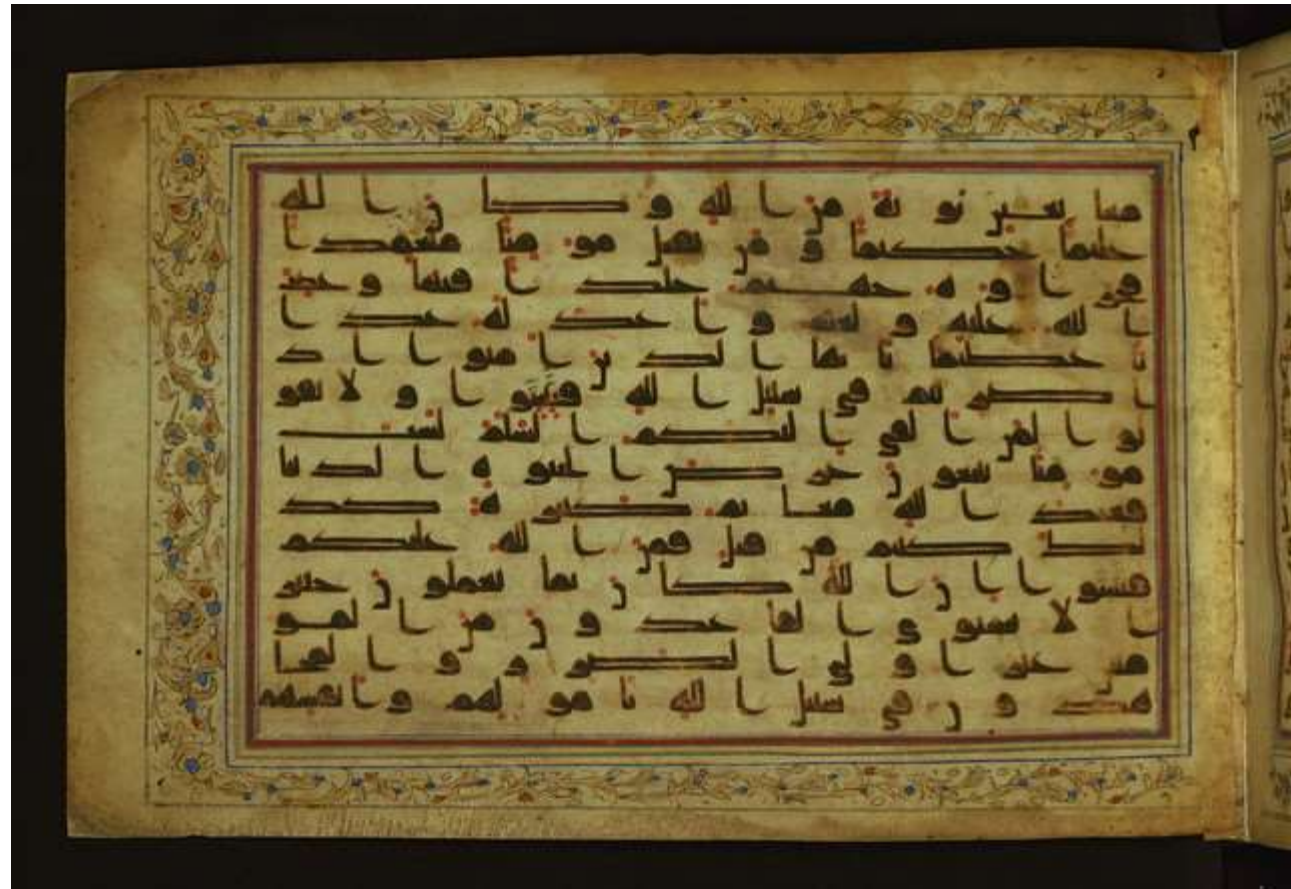 متتابعين توبة من الله وكان الله
عليما حكيما ومن يقتل مومنا متعمدا
فجزاوه جهنم خلدا فيها وغضب
الله عليه ولعنه واعد له عذا
با عظيما يايها الذين امنوا اذ
ا ضربتم في سبيل الله فتبينوا ولا تقو
لوا لمن القى اليكم السلم لست
مومنا تبتغون عرض الحيوة الدنيا
فعند الله مغانم كثيرة كذ
لك كنتم من قبل فمن الله عليكم
فتبينوا ان الله كان بما تعملون خبير
ا لا يستوي القاعدون من المو
منين غير اولي الضرر والمجا
هدون في سبيل الله باموالهم وانفسهم